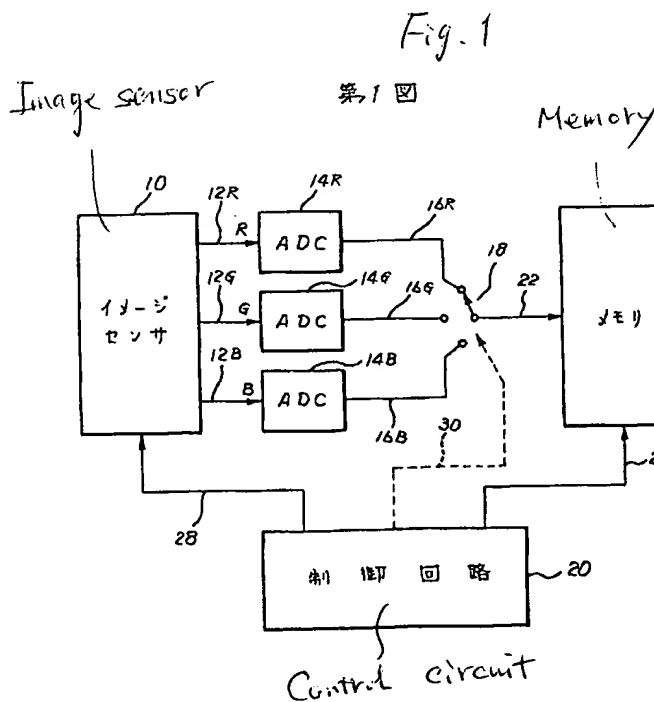 Fig. 1
第1図
Image sensor
Memory
10
12R
R
14R
ADC
16R
18
22
イメージ
センサ
12G
G
14G
ADC
16G
メモリ
12B
B
14B
ADC
16B
30
28
2
制御回路
20
Control circuit